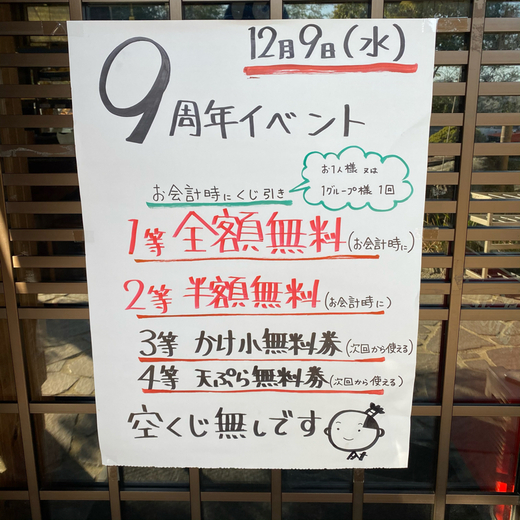 12月9日(水)
9周年イベント
お1人様 又は
1グループ様 1回
お会計時にくじ引き
1等 全額無料(お会計時に)
2等 半額無料(お会計時に)
3等 かけ小無料券(次回から使える)
4等 天ぷら無料券(次回から使える)
空くじ無しです